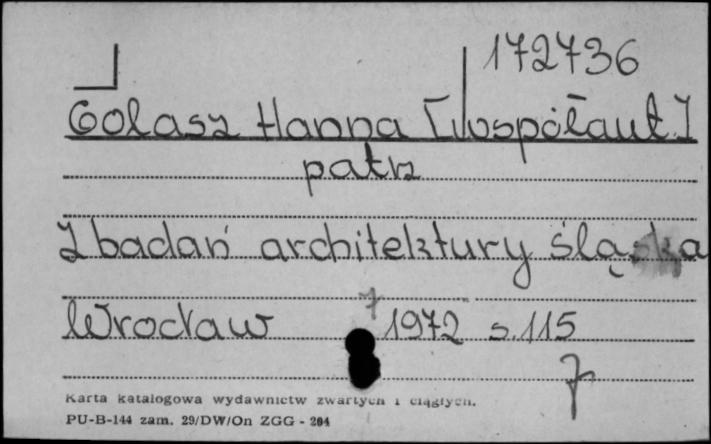 172736
Golasz Hanna [Współaut.]
patrz
Z badań architektury śląska
Wrocław 1972 s. 115
7
Karta katalogowa wydawnictw zwartych i ciągłych.
PU-B-144 zam. 29/DW/On ZGG - 204